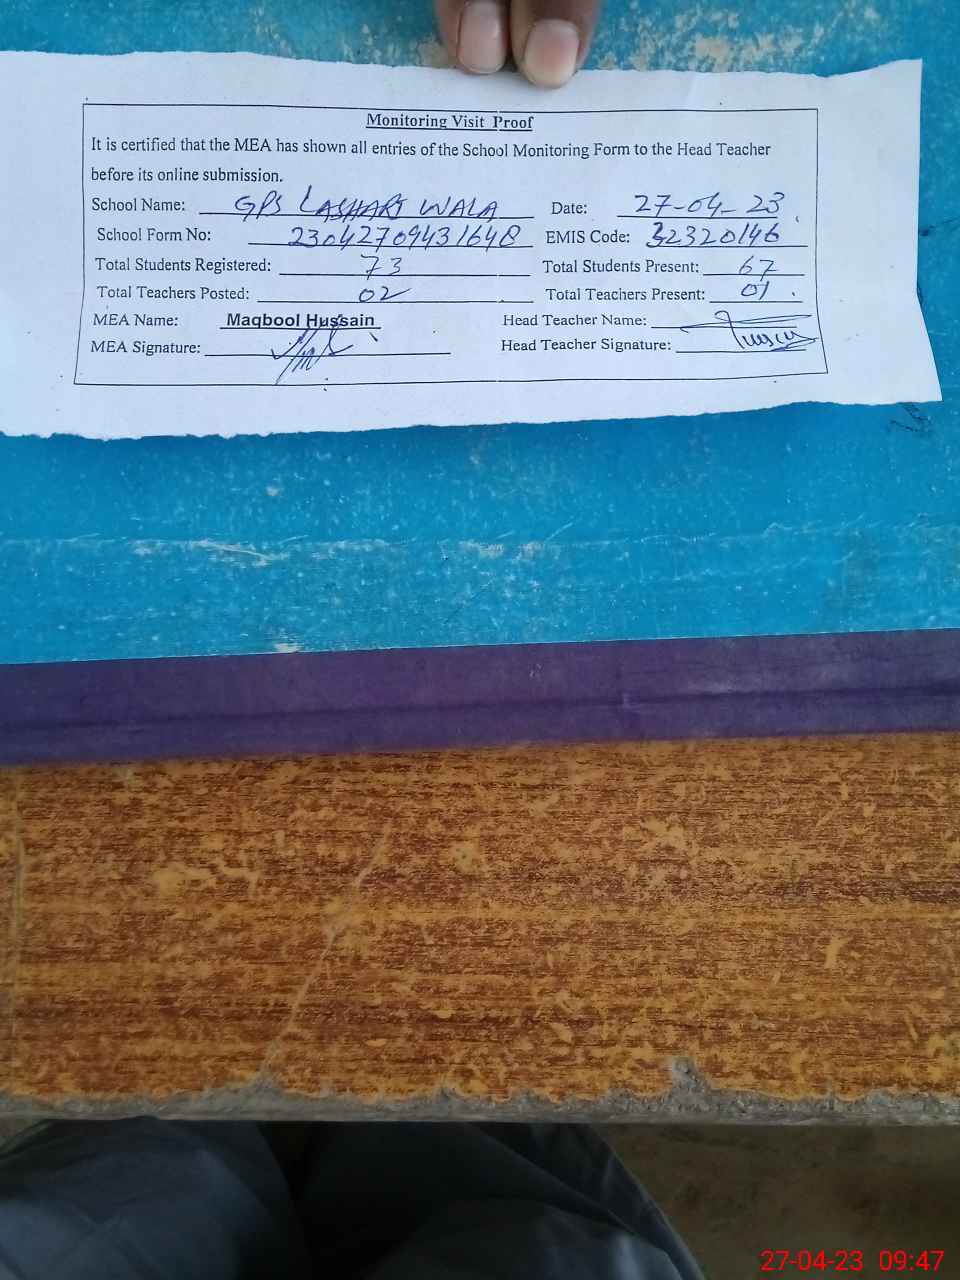 Monitoring Visit Proof
It is certified that the MEA has shown all entries of the School Monitoring Form to the Head Teacher
before its online submission.
School Name: GPS LASHARI WALA Date: 27-04-23
School Form No: 23042709431648 EMIS Code: 32320146
Total Students Registered: 73 Total Students Present: 67
Total Teachers Posted: 02 Total Teachers Present: 01
MEA Name: Maqbool Hussain Head Teacher Name:
MEA Signature: Head Teacher Signature:
27-04-23 09:47